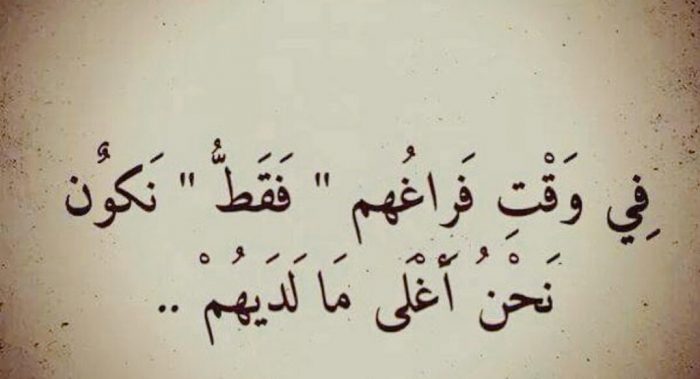 فِي وَقْتِ فَراغُهم " فَقَطُّ " نَكوُن
نَحْنُ أَغْلَى مَا لَدَيهُمْ ..